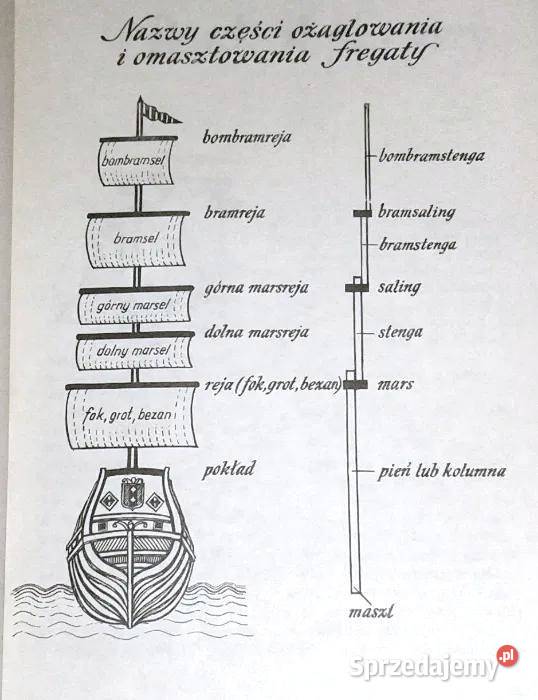 Nazwy części ożaglowania
i omasztowania fregaty
bombramreja
bombramsel
bombramstenga
bramreja
bramsaling
bramsel
bramstenga
górna marsreja
saling
górny marsel
dolna marsreja
stenga
dolny marsel
reja (fok, grot, bezan)
mars
fok, grot, bezan
pokład
pień lub kolumna
maszt
Sprzedajemy.pl